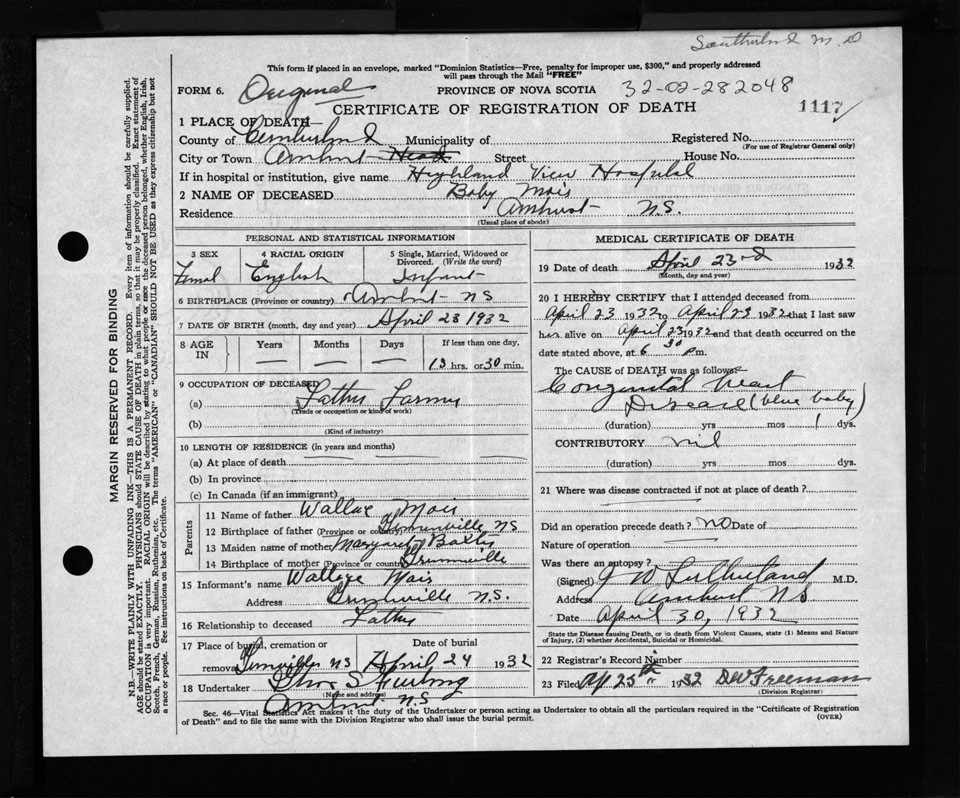 Southerland M.D
This form if placed in an envelope, marked "Dominion Statistics—Free, penalty for improper use, $300," and properly addressed
will pass through the Mail "FREE"
FORM 6. Original PROVINCE OF NOVA SCOTIA 32-02-282048
CERTIFICATE OF REGISTRATION OF DEATH 1117
1 PLACE OF DEATH—
County of Cumberland Municipality of Registered No.
(For use of Registrar General only)
City or Town Amherst Head Street House No.
If in hospital or institution, give name Highland View Hospital
2 NAME OF DECEASED Baby Mais
Residence Amherst N.S.
(Usual place of abode)
PERSONAL AND STATISTICAL INFORMATION
3 SEX 4 RACIAL ORIGIN 5 Single, Married, Widowed or Divorced. (Write the word)
Femal English Infant
6 BIRTHPLACE (Province or country) Amherst NS
7 DATE OF BIRTH (month, day and year) April 23 1932
8 AGE IN Years Months Days If less than one day,
— — — 13 hrs. or 30 min.
9 OCCUPATION OF DECEASED
(a) Father Farmer
(Trade or occupation or kind of work)
(b)
(Kind of industry)
10 LENGTH OF RESIDENCE (in years and months)
(a) At place of death
(b) In province
(c) In Canada (if an immigrant)
Parents
11 Name of father Wallace Mais
12 Birthplace of father (Province or country) NS
13 Maiden name of mother Margaret
14 Birthplace of mother (Province or country)
15 Informant's name Wallace Mais
Address N.S.
16 Relationship to deceased Father
17 Place of burial, cremation or removal NS Date of burial April 24 1932
18 Undertaker
(Name and address)
Amherst N.S
MEDICAL CERTIFICATE OF DEATH
19 Date of death April 23rd 1932
(Month, day and year)
20 I HEREBY CERTIFY that I attended deceased from
April 23 1932 to April 23 1932 that I last saw
h alive on April 23 1932 and that death occurred on
date stated above, at 6 30 p m.
The CAUSE of DEATH was as follows:
Congenital Heart
Disease (blue baby)
(duration) yrs mos 1 dys.
CONTRIBUTORY nil
(duration) yrs mos dys.
21 Where was disease contracted if not at place of death?
Did an operation precede death? NO Date of
Nature of operation —
Was there an autopsy?
(Signed) J W Sutherland M.D.
Address Amherst NS
Date April 30, 1932
State the Disease causing Death, or in death from Violent Causes, state (1) Means and Nature
of Injury, (2) whether Accidental, Suicidal or Homicidal.
22 Registrar's Record Number
23 Filed Ap 25th 1932 DW Freeman
(Division Registrar)
Sec. 46—Vital Statistics Act makes it the duty of the Undertaker or person acting as Undertaker to obtain all the particulars required in the "Certificate of Registration
of Death" and to file the same with the Division Registrar who shall issue the burial permit. (OVER)
MARGIN RESERVED FOR BINDING
N.B.—WRITE PLAINLY WITH UNFADING INK—THIS IS A PERMANENT RECORD. Every item of information should be carefully supplied.
AGE should be stated EXACTLY. PHYSICIANS should STATE CAUSE OF DEATH in plain terms, so that it may be properly classified. Exact statement of
OCCUPATION is very important. RACIAL ORIGIN will be described by stating to what people or race the deceased person belonged, whether English, Irish,
Scotch, French, German, Russian, Ruthenian, etc. The terms "AMERICAN" or "CANADIAN" SHOULD NOT BE USED as they express citizenship but not
a race or people. See instructions on back of Certificate.